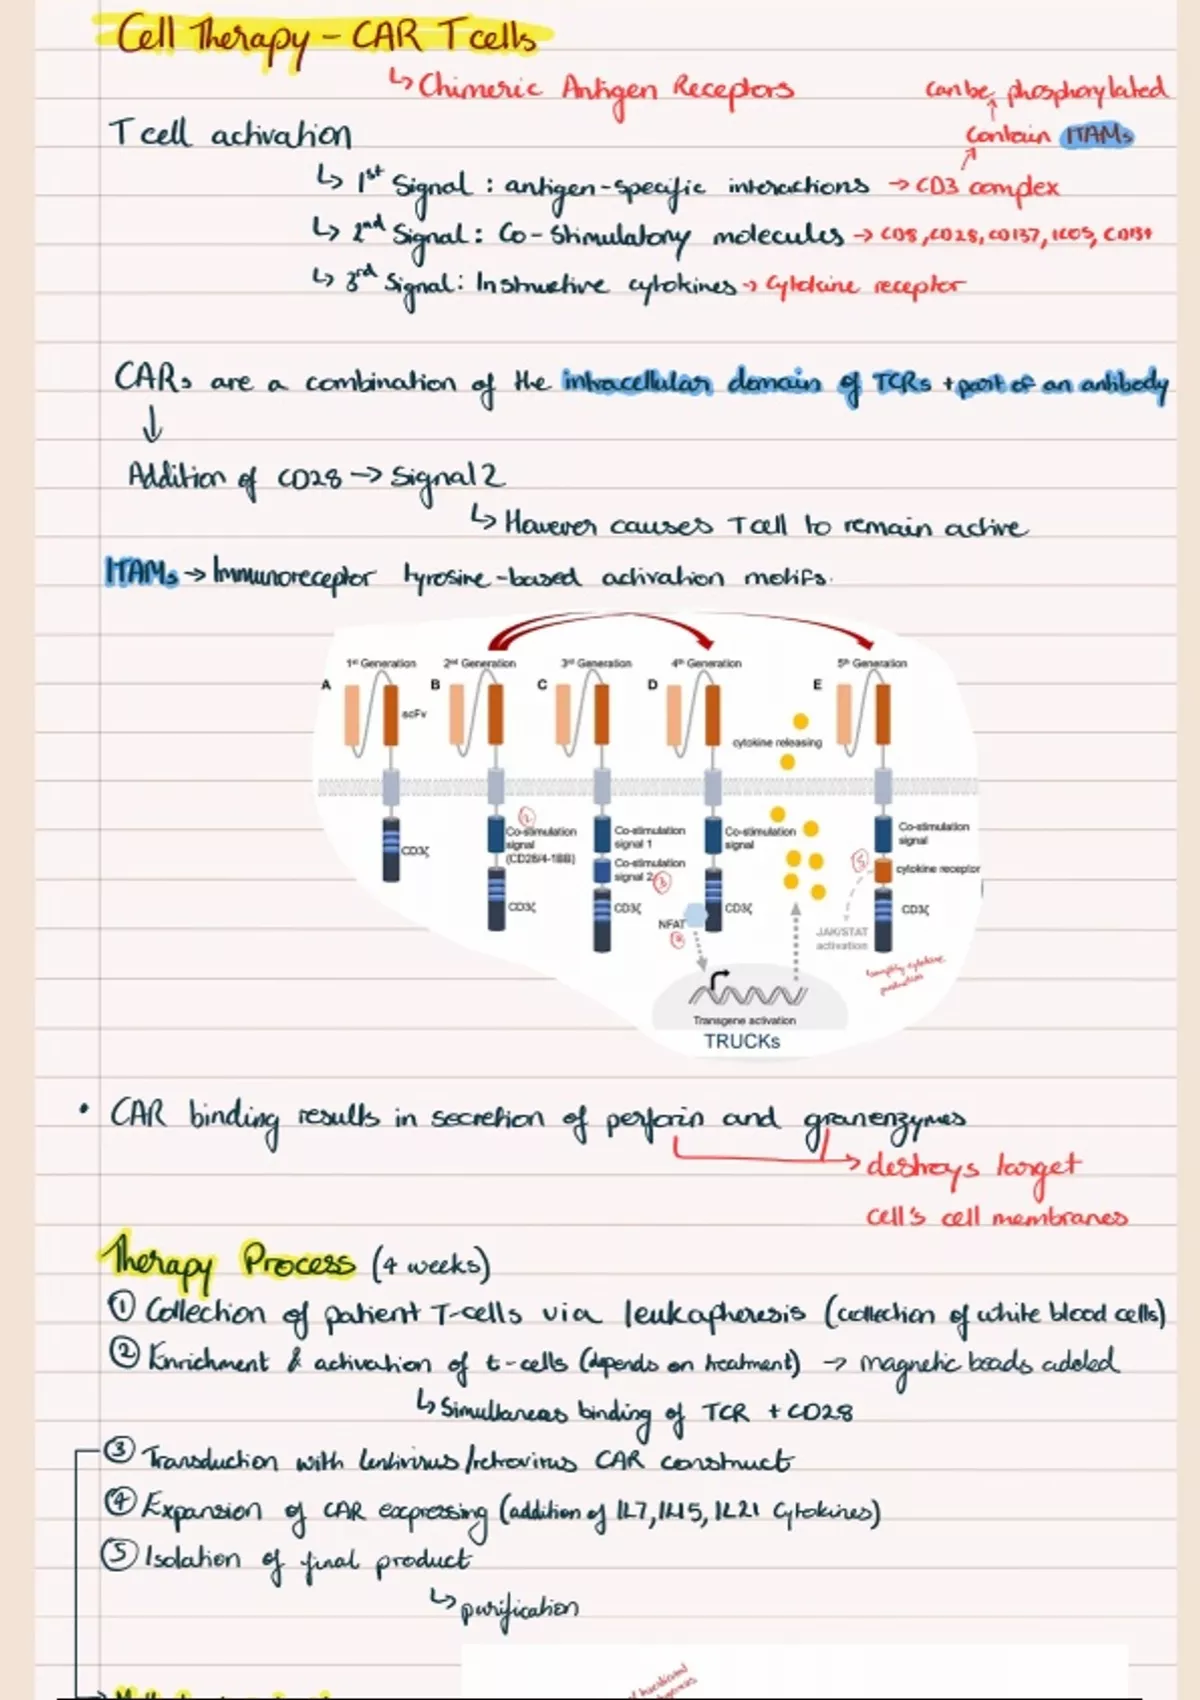 Cell Therapy - CAR T cells
↳ Chimeric Antigen Receptors
can be phosphorylated
T cell activation
contain ITAMs
↳ 1st Signal : antigen-specific interactions → CD3 complex
↳ 2nd Signal : Co-Stimulatory molecules → CD8, CD28, CD137, ICOS, CD134
↳ 3rd Signal : Instructive cytokines → Cytokine receptor
CARs are a combination of the intracellular domain of TCRs + part of an antibody
↓
Addition of CD28 → Signal 2
↳ However causes T cell to remain active
ITAMs → Immunoreceptor tyrosine-based activation motifs.
1st Generation
2nd Generation
3rd Generation
4th Generation
5th Generation
A
B
C
D
E
scFv
cytokine releasing
②
CD3ζ
Co-stimulation
signal
(CD28/4-1BB)
CD3ζ
Co-stimulation
signal 1
Co-stimulation
signal 2
③
CD3ζ
Co-stimulation
signal
CD3ζ
NFAT
④
Co-stimulation
signal
⑤
cytokine receptor
CD3ζ
JAK/STAT
activation
cytokine
production
Transgene activation
TRUCKs
• CAR binding results in secretion of perforin and granenzymes
→ destroys target
cell's cell membranes
Therapy Process (4 weeks)
① Collection of patient T-cells via leukapheresis (collection of white blood cells)
② Enrichment & activation of t-cells (depends on treatment) → magnetic beads added
↳ Simultaneas binding of TCR + CD28
③ Transduction with lentivirus/retrovirus CAR construct
④ Expansion of CAR expressing (addition of IL7, IL15, IL21 Cytokines)
⑤ Isolation of final product
↳ purification